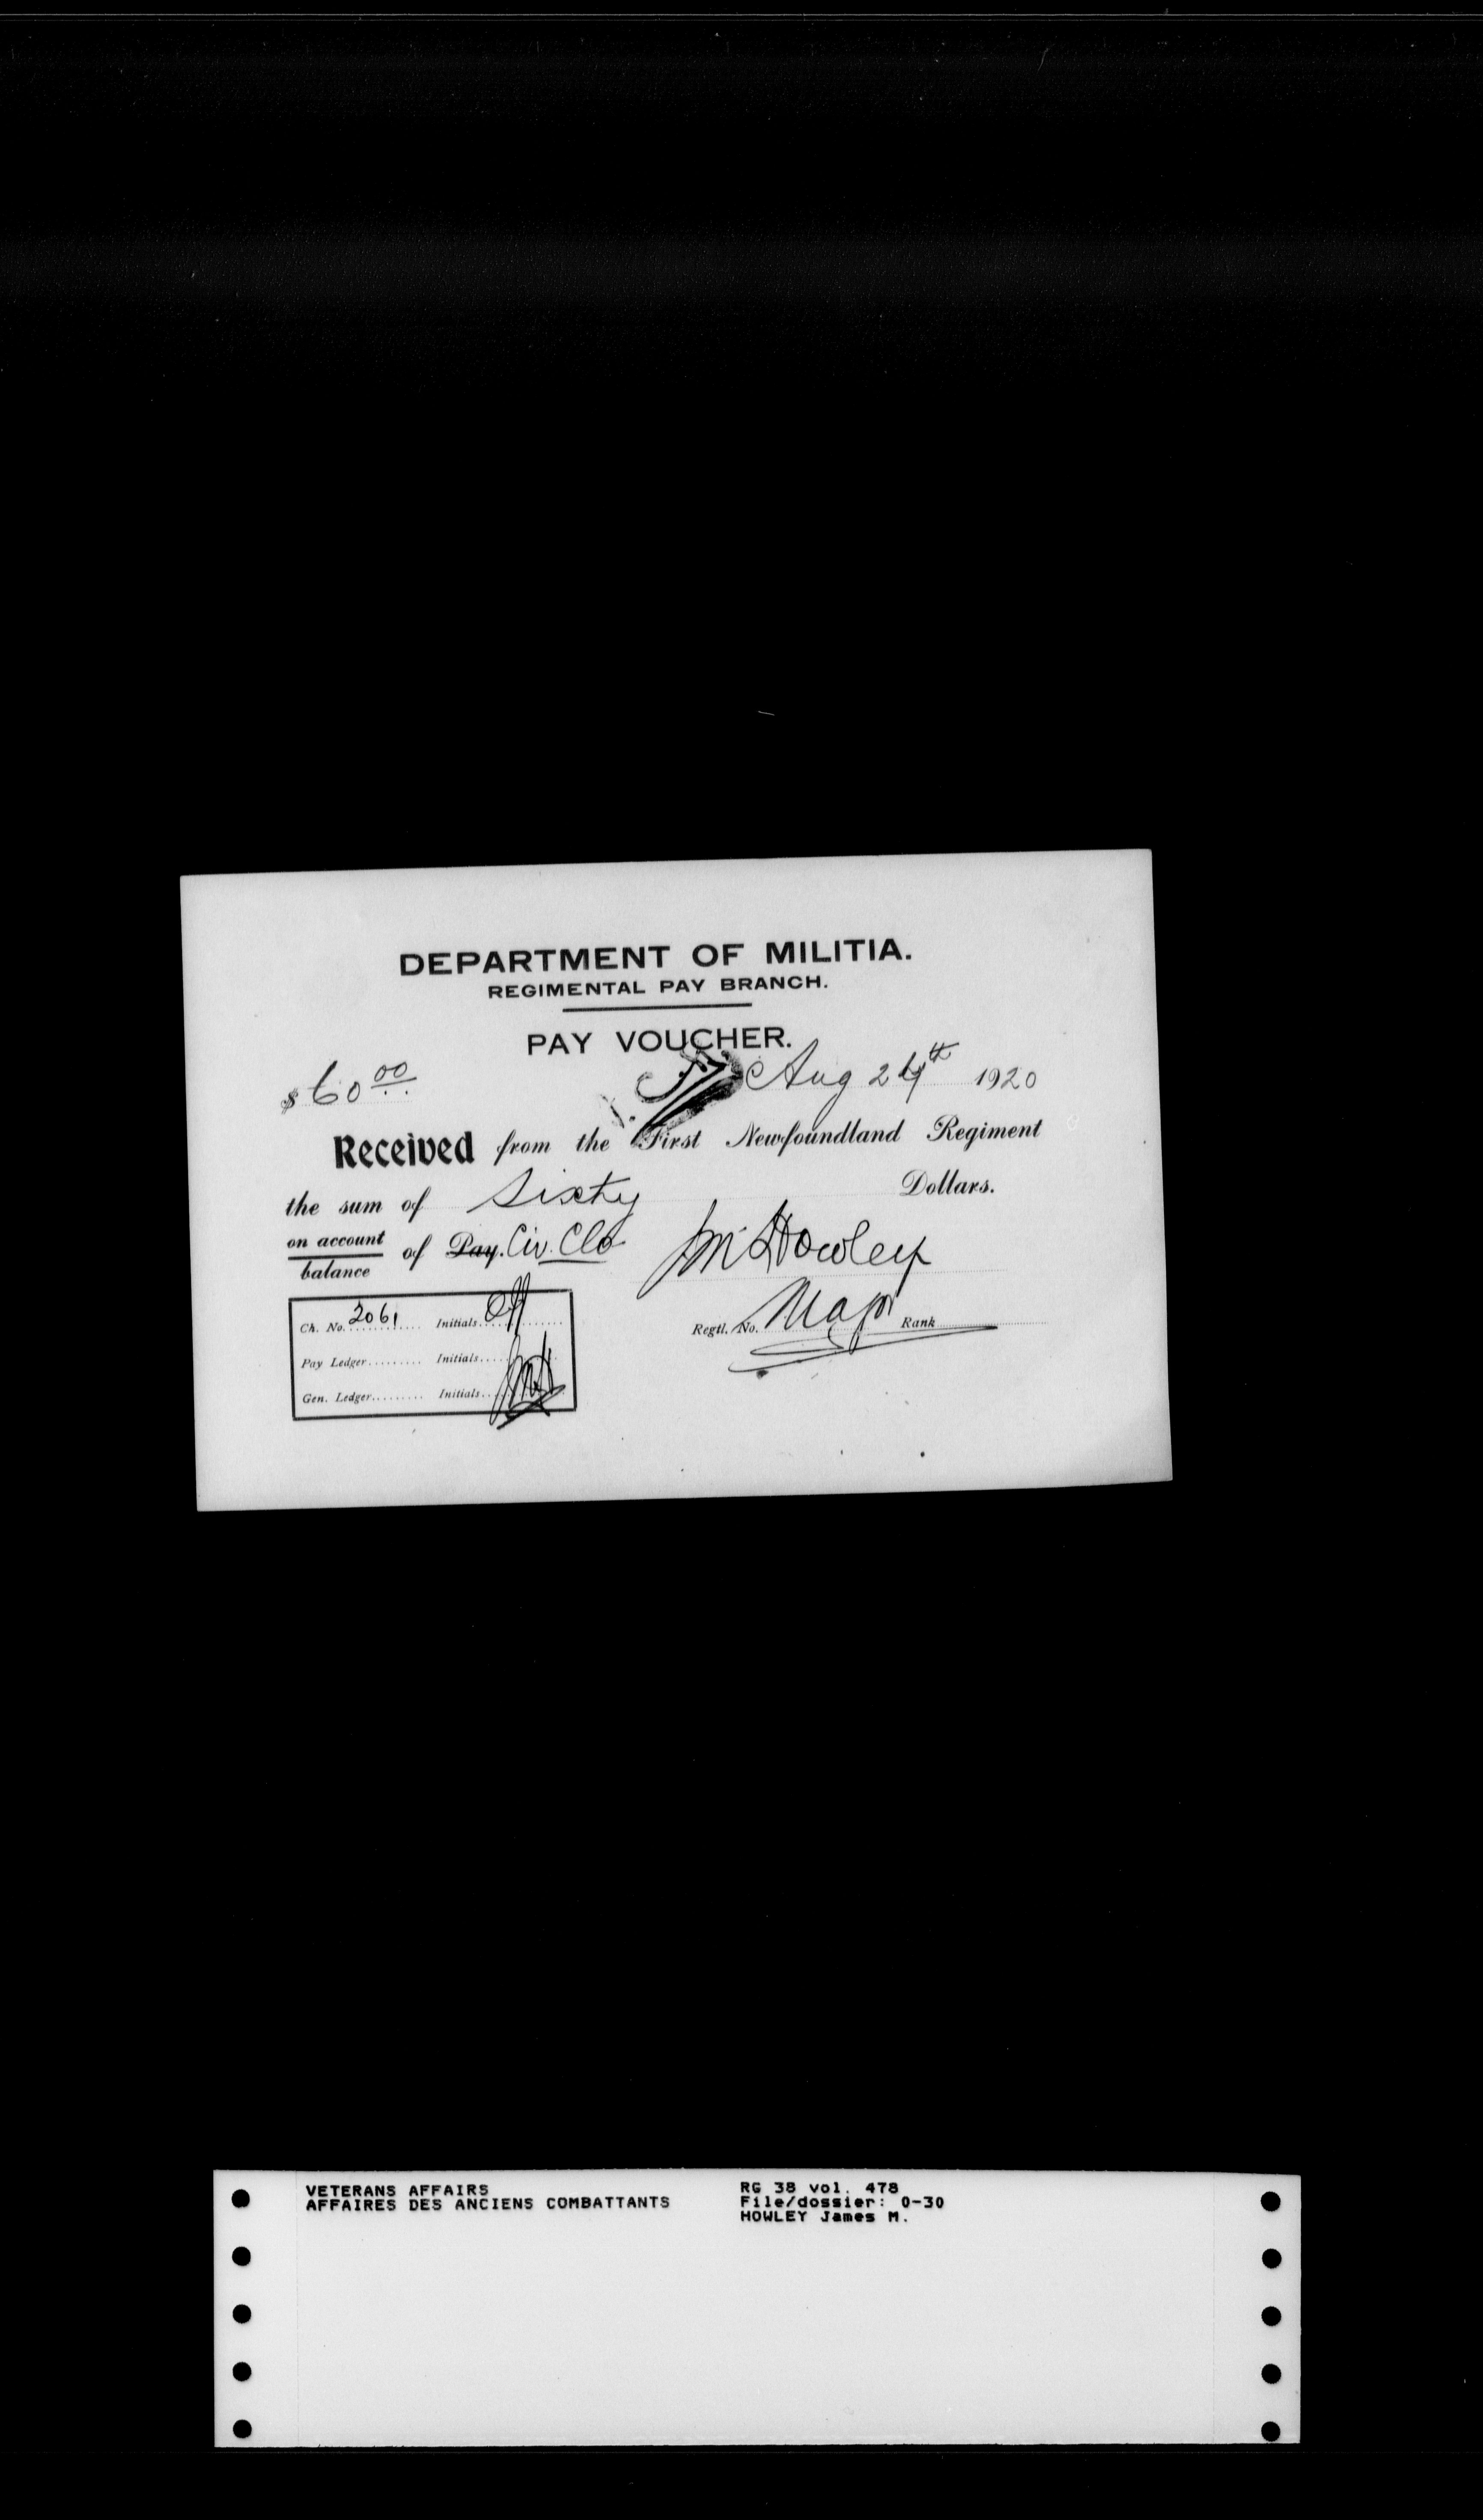 DEPARTMENT OF MILITIA.
REGIMENTAL PAY BRANCH.
PAY VOUCHER.
$60 00 Aug 1920
Received from the First Newfoundland Regiment
the sum of Sixty Dollars.
on account
balance of Pay. Civ. Clo
JM Howley
Ch. No. 2061 Initials
Regtl. No. Major Rank
Pay Ledger......... Initials
Gen. Ledger......... Initials JMH
VETERANS AFFAIRS RG 38 vol. 478
AFFAIRES DES ANCIENS COMBATTANTS File/dossier: 0-30
HOWLEY James M.